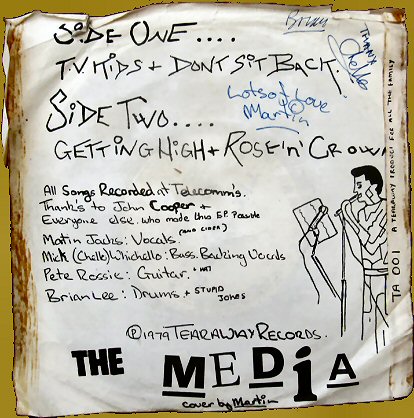 SiDE ONE....
T.V. KiDS + DONT SiT BACK.
SiDE TWO....
GETTiNG HiGH + ROSE'n'CROWn
Brian
THANX
Chelle
Lots of Love
Martin
All Songs Recorded at Telecomm's.
Thanks to John Cooper +
Everyone else who made this EP Possible
(AND CIDER)
Martin Jacks: Vocals.
Mick (Chelle) Whichello: Bass. Backing Vocals
Pete Rossie: Guitar. + HAT
Brian Lee: Drums. + STUPID JOKES
©1979 TEARAWAY RECORDS.
THE MEDiA
cover by Martin
TA 001 A TEARAWAY PRODUCT FOR ALL THE FAMILY